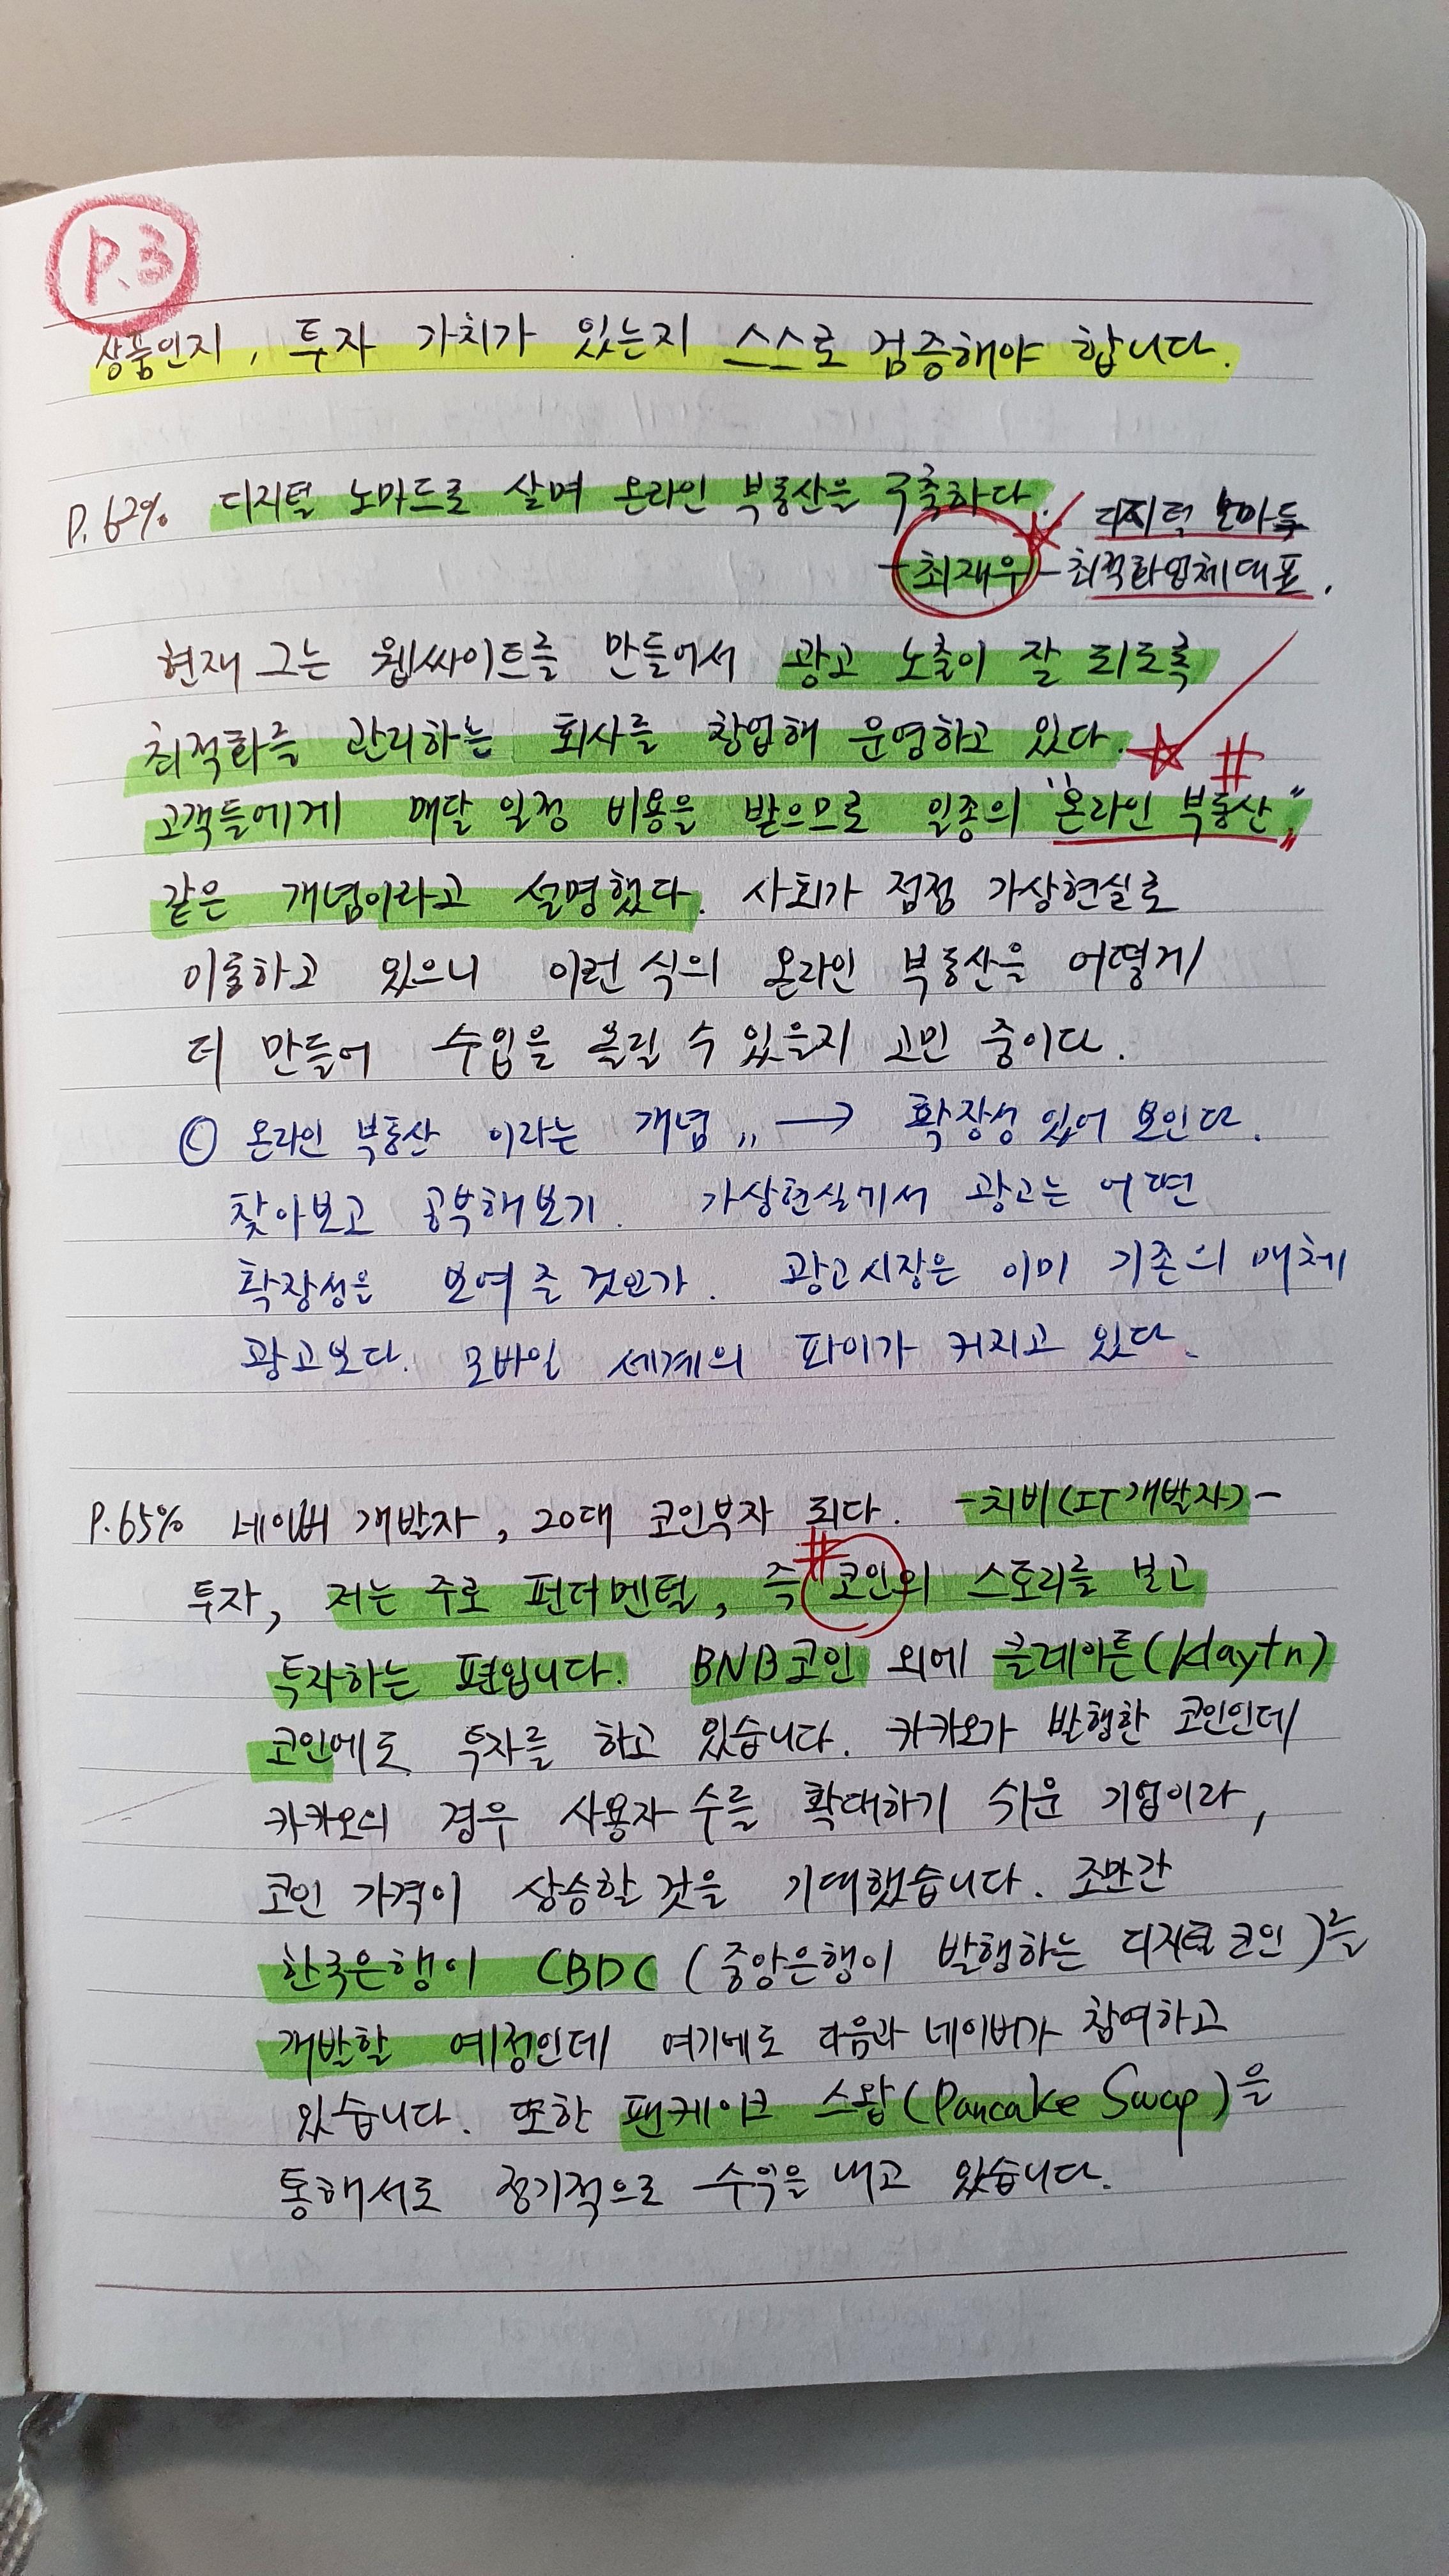 P.3
상품인지, 투자 가치가 있는지 스스로 검증해야 합니다.
P.62% 디지털 노마드로 살며 온라인 부동산을 구축하다.
디지털 노마드
-최재우- 최적화업체대표.
현재 그는 웹싸이트를 만들어서 광고 노출이 잘 되도록
최적화를 관리하는 회사를 창업해 운영하고 있다.
#
고객들에게 매달 일정 비용을 받으므로 일종의 "온라인 부동산"
같은 개념이라고 설명했다. 사회가 점점 가상현실로
이동하고 있으니 이런 식의 온라인 부동산을 어떻게
더 만들어 수입을 올릴 수 있을지 고민 중이다.
ⓒ 온라인 부동산 이라는 개념,, → 확장성 있어 보인다.
찾아보고 공부해보기. 가상현실에서 광고는 어떤
확장성을 보여 줄 것인가. 광고시장은 이미 기존의 매체
광고보다. 모바일 세계의 파이가 커지고 있다.
P.65% 네이버 개발자, 20대 코인부자 되다. -치비(IT개발자)-
#
투자, 저는 주로 펀더멘털, 즉 코인의 스토리를 보고
투자하는 편입니다. BNB코인 외에 클레이튼(klaytn)
코인에도 투자를 하고 있습니다. 카카오가 발행한 코인인데
카카오의 경우 사용자 수를 확대하기 쉬운 기업이라,
코인 가격이 상승할 것을 기대했습니다. 조만간
한국은행이 CBDC (중앙은행이 발행하는 디지털 코인)를
개발할 예정인데 여기에도 다음과 네이버가 참여하고
있습니다. 또한 팬케이크 스왑(Pancake Swap)을
통해서도 정기적으로 수익을 내고 있습니다.